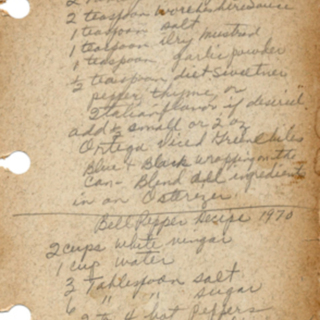 2
2 teaspoon worcheshiresauce
1 teaspoon salt
1 teaspoon dry mustard
1 teaspoon garlic powder
½ teaspoon diet sweetner
pepper, thyme, or
Italian flavor if desired.
add ½ small or 2 oz
Ortega diced Green chiles
Blue + Black wrapping on the
Can - Blend all ingredients
in an Osterizer
Bell Pepper Recipe 1970
2 cups white vinegar
1 cup water
3 Tablespoon salt
6 " " sugar
2 to 4 hot peppers